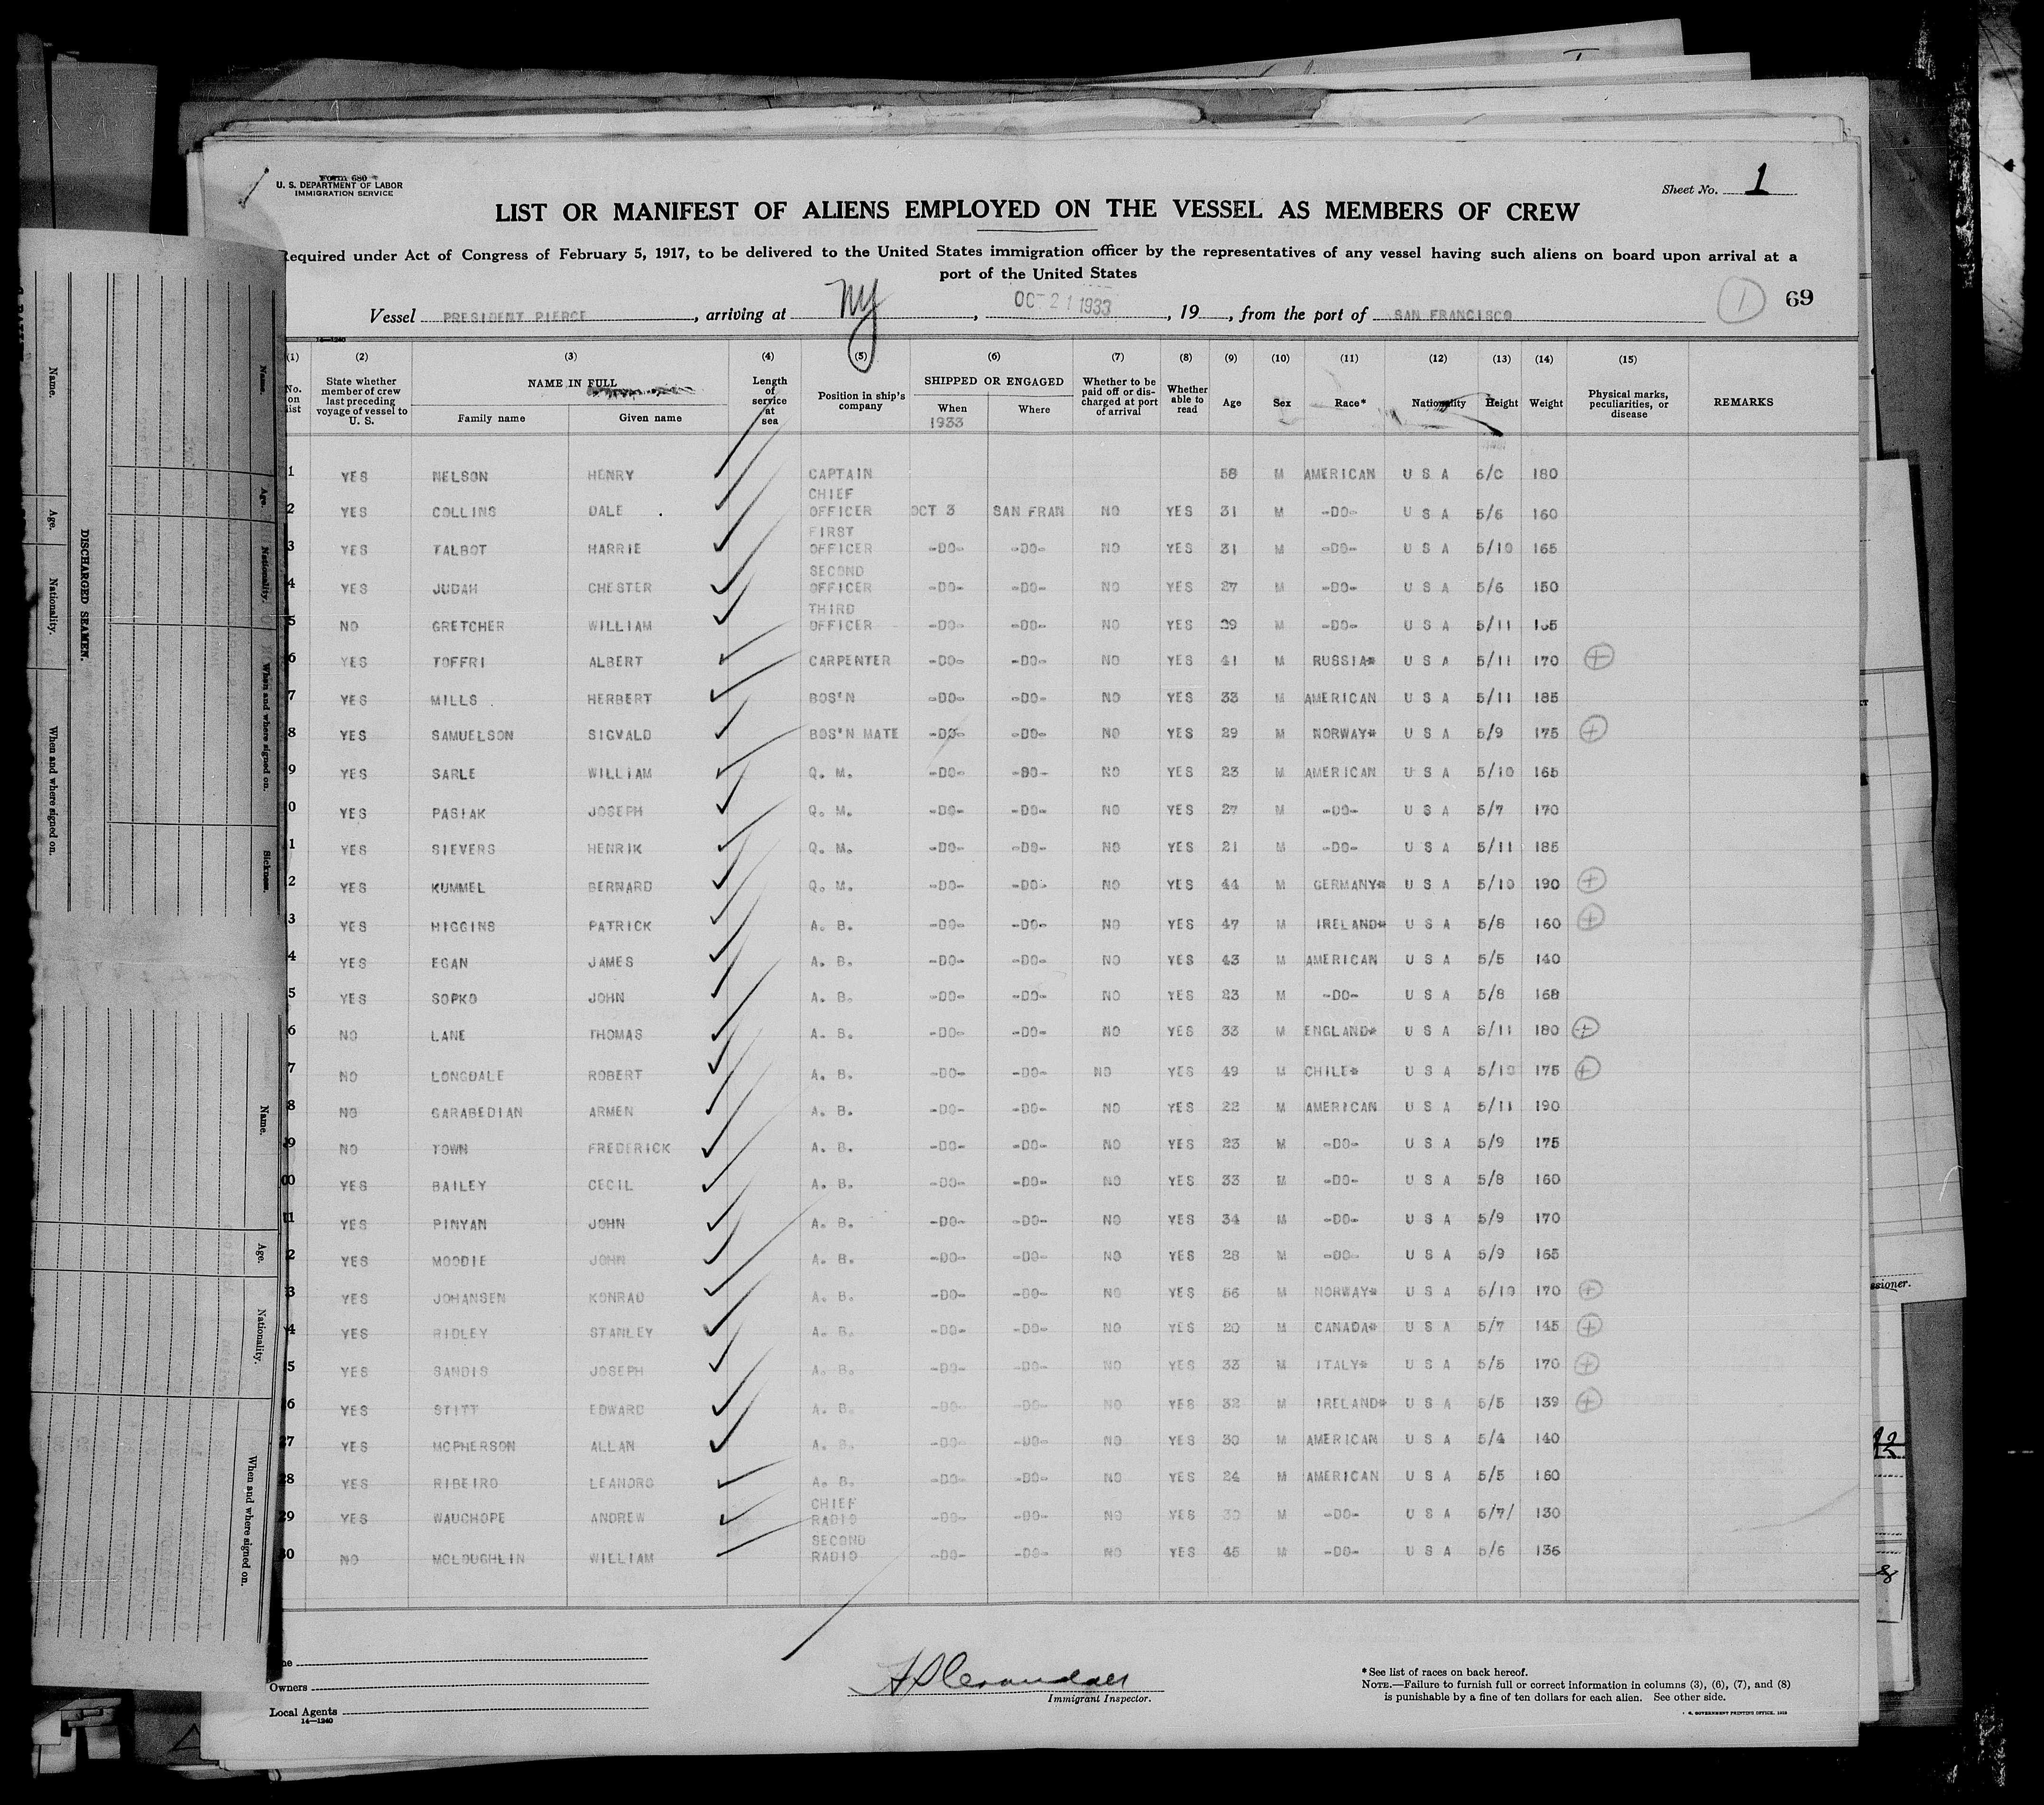 Form 680
U. S. DEPARTMENT OF LABOR
IMMIGRATION SERVICE
Sheet No. 1
LIST OR MANIFEST OF ALIENS EMPLOYED ON THE VESSEL AS MEMBERS OF CREW
Required under Act of Congress of February 5, 1917, to be delivered to the United States immigration officer by the representatives of any vessel having such aliens on board upon arrival at a
port of the United States
Vessel PRESIDENT PIERCE, arriving at NY, OCT 21 1933, 19 , from the port of SAN FRANCISCO 1 69
14—1240
(1) (2) (3) (4) (5) (6) (7) (8) (9) (10) (11) (12) (13) (14) (15)
No. on list
State whether member of crew last preceding voyage of vessel to U. S.
NAME IN FULL
Family name Given name
Length of service at sea
Position in ship's company
SHIPPED OR ENGAGED
When Where
1933
Whether to be paid off or discharged at port of arrival
Whether able to read
Age Sex Race* Nationality Height Weight
Physical marks, peculiarities, or disease
REMARKS
1 YES NELSON HENRY CAPTAIN 58 M AMERICAN U S A 6/0 180
2 YES COLLINS DALE CHIEF OFFICER OCT 3 SAN FRAN NO YES 31 M -DO- U S A 5/6 160
3 YES TALBOT HARRIE FIRST OFFICER -DO- -DO- NO YES 31 M -DO- U S A 5/10 165
4 YES JUDAH CHESTER SECOND OFFICER -DO- -DO- NO YES 27 M -DO- U S A 5/6 150
5 NO GRETCHER WILLIAM THIRD OFFICER -DO- -DO- NO YES 29 M -DO- U S A 5/11 165
6 YES TOFFRI ALBERT CARPENTER -DO- -DO- NO YES 41 M RUSSIA* U S A 5/11 170 +
7 YES MILLS HERBERT BOS'N -DO- -DO- NO YES 33 M AMERICAN U S A 5/11 185
8 YES SAMUELSON SIGVALD BOS'N MATE -DO- -DO- NO YES 29 M NORWAY* U S A 5/9 175 +
9 YES SARLE WILLIAM Q. M. -DO- -DO- NO YES 23 M AMERICAN U S A 5/10 165
0 YES PASIAK JOSEPH Q. M. -DO- -DO- NO YES 27 M -DO- U S A 5/7 170
1 YES SIEVERS HENRIK Q. M. -DO- -DO- NO YES 21 M -DO- U S A 5/11 185
2 YES KUMMEL BERNARD Q. M. -DO- -DO- NO YES 44 M GERMANY* U S A 5/10 190 +
3 YES HIGGINS PATRICK A. B. -DO- -DO- NO YES 47 M IRELAND* U S A 5/8 160 +
4 YES EGAN JAMES A. B. -DO- -DO- NO YES 43 M AMERICAN U S A 5/5 140
5 YES SOPKO JOHN A. B. -DO- -DO- NO YES 23 M -DO- U S A 5/8 168
6 NO LANE THOMAS A. B. -DO- -DO- NO YES 33 M ENGLAND* U S A 5/11 180 +
7 NO LONGDALE ROBERT A. B. -DO- -DO- NO YES 49 M CHILE* U S A 5/10 175 +
8 NO GARABEDIAN ARMEN A. B. -DO- -DO- NO YES 22 M AMERICAN U S A 5/11 190
9 NO TOWN FREDERICK A. B. -DO- -DO- NO YES 23 M -DO- U S A 5/9 175
0 YES BAILEY CECIL A. B. -DO- -DO- NO YES 33 M -DO- U S A 5/8 160
1 YES PINYAN JOHN A. B. -DO- -DO- NO YES 34 M -DO- U S A 5/9 170
2 YES MOODIE JOHN A. B. -DO- -DO- NO YES 28 M -DO- U S A 5/9 165
3 YES JOHANSEN KONRAD A. B. -DO- -DO- NO YES 56 M NORWAY* U S A 5/10 170 +
4 YES RIDLEY STANLEY A. B. -DO- -DO- NO YES 20 M CANADA* U S A 5/7 145 +
5 YES SANDIS JOSEPH A. B. -DO- -DO- NO YES 33 M ITALY* U S A 5/5 170 +
6 YES STITT EDWARD A. B. -DO- -DO- NO YES 32 M IRELAND* U S A 5/5 139 +
27 YES MCPHERSON ALLAN A. B. -DO- -DO- NO YES 30 M AMERICAN U S A 5/4 140
28 YES RIBEIRO LEANDRO A. B. -DO- -DO- NO YES 24 M AMERICAN U S A 5/5 160
29 YES WAUCHOPE ANDREW CHIEF RADIO -DO- -DO- NO YES 30 M -DO- U S A 5/7/ 130
30 NO MCLOUGHLIN WILLIAM SECOND RADIO -DO- -DO- NO YES 45 M -DO- U S A 5/6 136
Owners
Local Agents
14—1240
Immigrant Inspector.
*See list of races on back hereof.
NOTE.—Failure to furnish full or correct information in columns (3), (6), (7), and (8)
is punishable by a fine of ten dollars for each alien. See other side.
DISCHARGED SEAMEN.
Name. Age. Nationality. When and where signed on.
Name. Age. Nationality. When and where signed on. Sickness.
Name. Age. Nationality. When and where signed on.
ssioner.